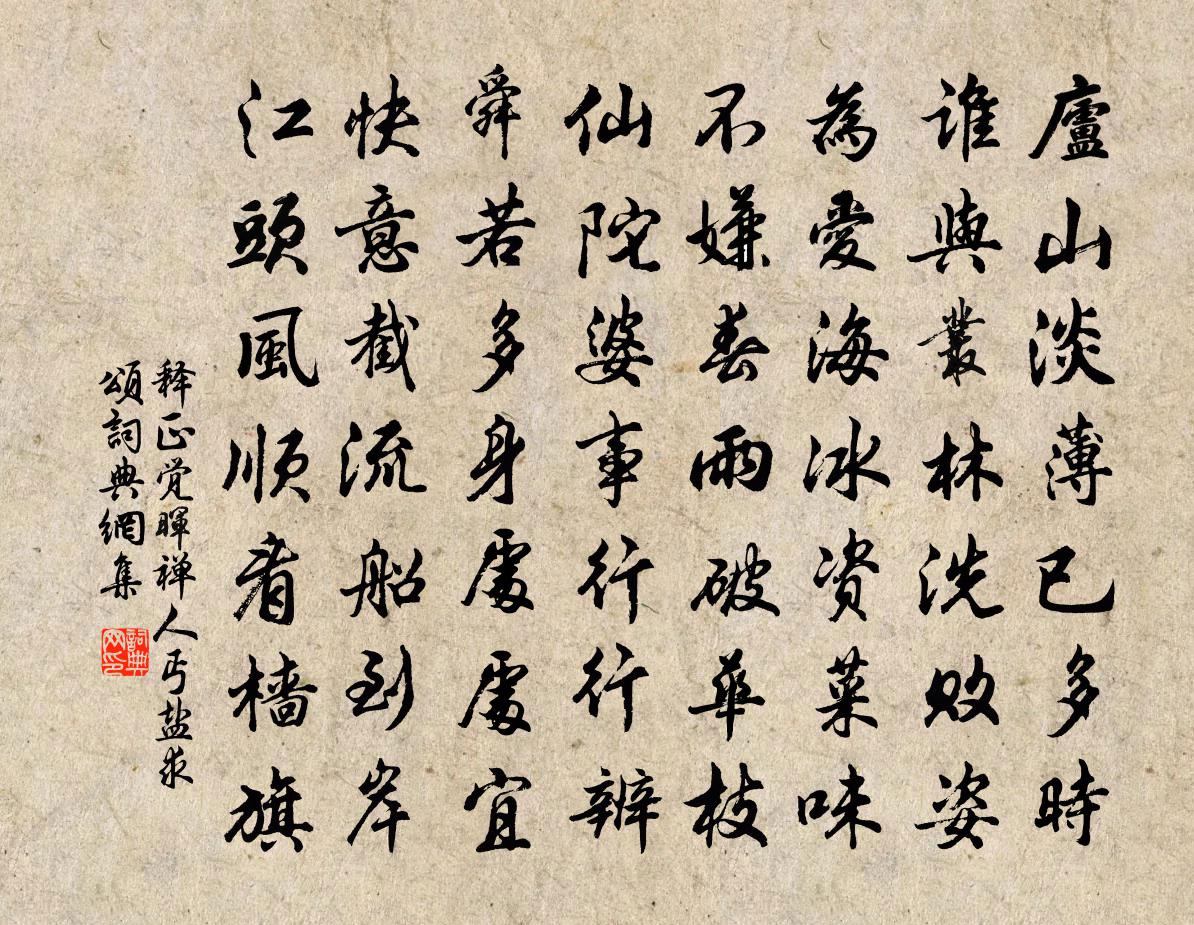 廬山淡薄已多時
誰與叢林洗敗姿
為愛海冰資菜味
不嫌春雨破華枝
仙陀婆事行行辨
舜若多身處處宜
快意截流船到岸
江頭風順看檣旗
释正觉暉禅人丐盐求
頌詞典網集
詞典
网印